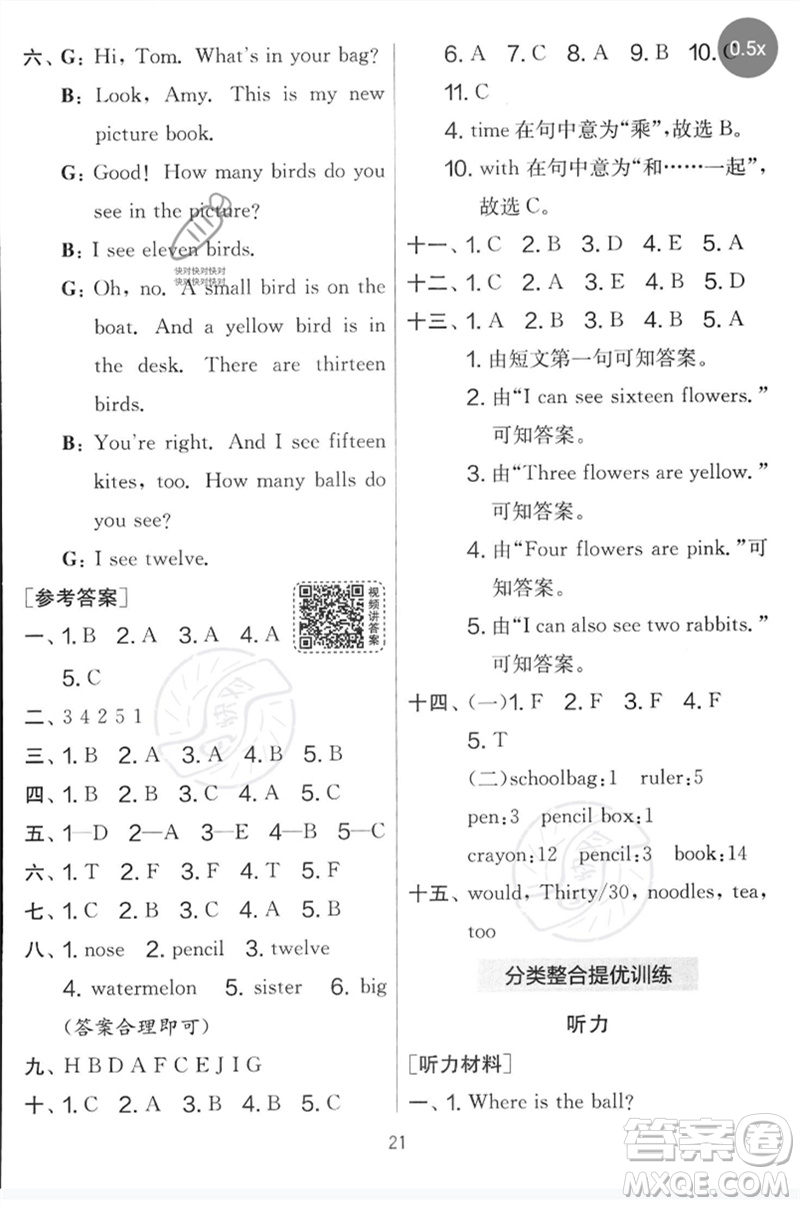 六、G: Hi, Tom. What's in your bag?
B: Look, Amy. This is my new
picture book.
G: Good! How many birds do you
see in the picture?
B: I see eleven birds.
G: Oh, no. A small bird is on the
boat. And a yellow bird is in
the desk. There are thirteen
birds.
B: You're right. And I see fifteen
kites, too. How many balls do
you see?
G: I see twelve.
[参考答案]
视频讲答案
一、1. B 2. A 3. A 4. A
5. C
二、3 4 2 5 1
三、1. B 2. A 3. A 4. B 5. B
四、1. B 2. B 3. A 4. B 5. B
五、1—D 2—A 3—E 4—B 5—C
六、1. T 2. F 3. F 4. T 5. F
七、1. C 2. B 3. A 4. C 5. B
八、1. nose 2. pencil 3. twelve
4. watermelon 5. sister 6. big
(答案合理即可)
九、H B D A F C E J I G
十、1. C 2. A 3. B 4. B 5. A
6. A 7. C 8. A 9. B 10. C
0.5x
11. C
4. time 在句中意为“乘”，故选 B。
10. with 在句中意为“和……一起”，
故选 C。
十一、1. C 2. B 3. D 4. E 5. A
十二、1. C 2. A 3. E 4. B 5. D
十三、1. A 2. B 3. B 4. B 5. A
1. 由短文第一句可知答案。
2. 由“I can see sixteen flowers.”
可知答案。
3. 由“Three flowers are yellow.”
可知答案。
4. 由“Four flowers are pink.”可
知答案。
5. 由“I can also see two rabbits.”
可知答案。
十四、(一)1. F 2. F 3. T 4. F
5. T
(二)schoolbag:1 ruler:5
pen:3 pencil box:1
crayon:12 pencil:3 book:14
十五、would, Thirty/30, noodles, tea,
too
分类整合提优训练
听力
[听力材料]
一、1. Where is the ball?
21
快对快对快对
快对快对快对
答案圈
MXQE.COM